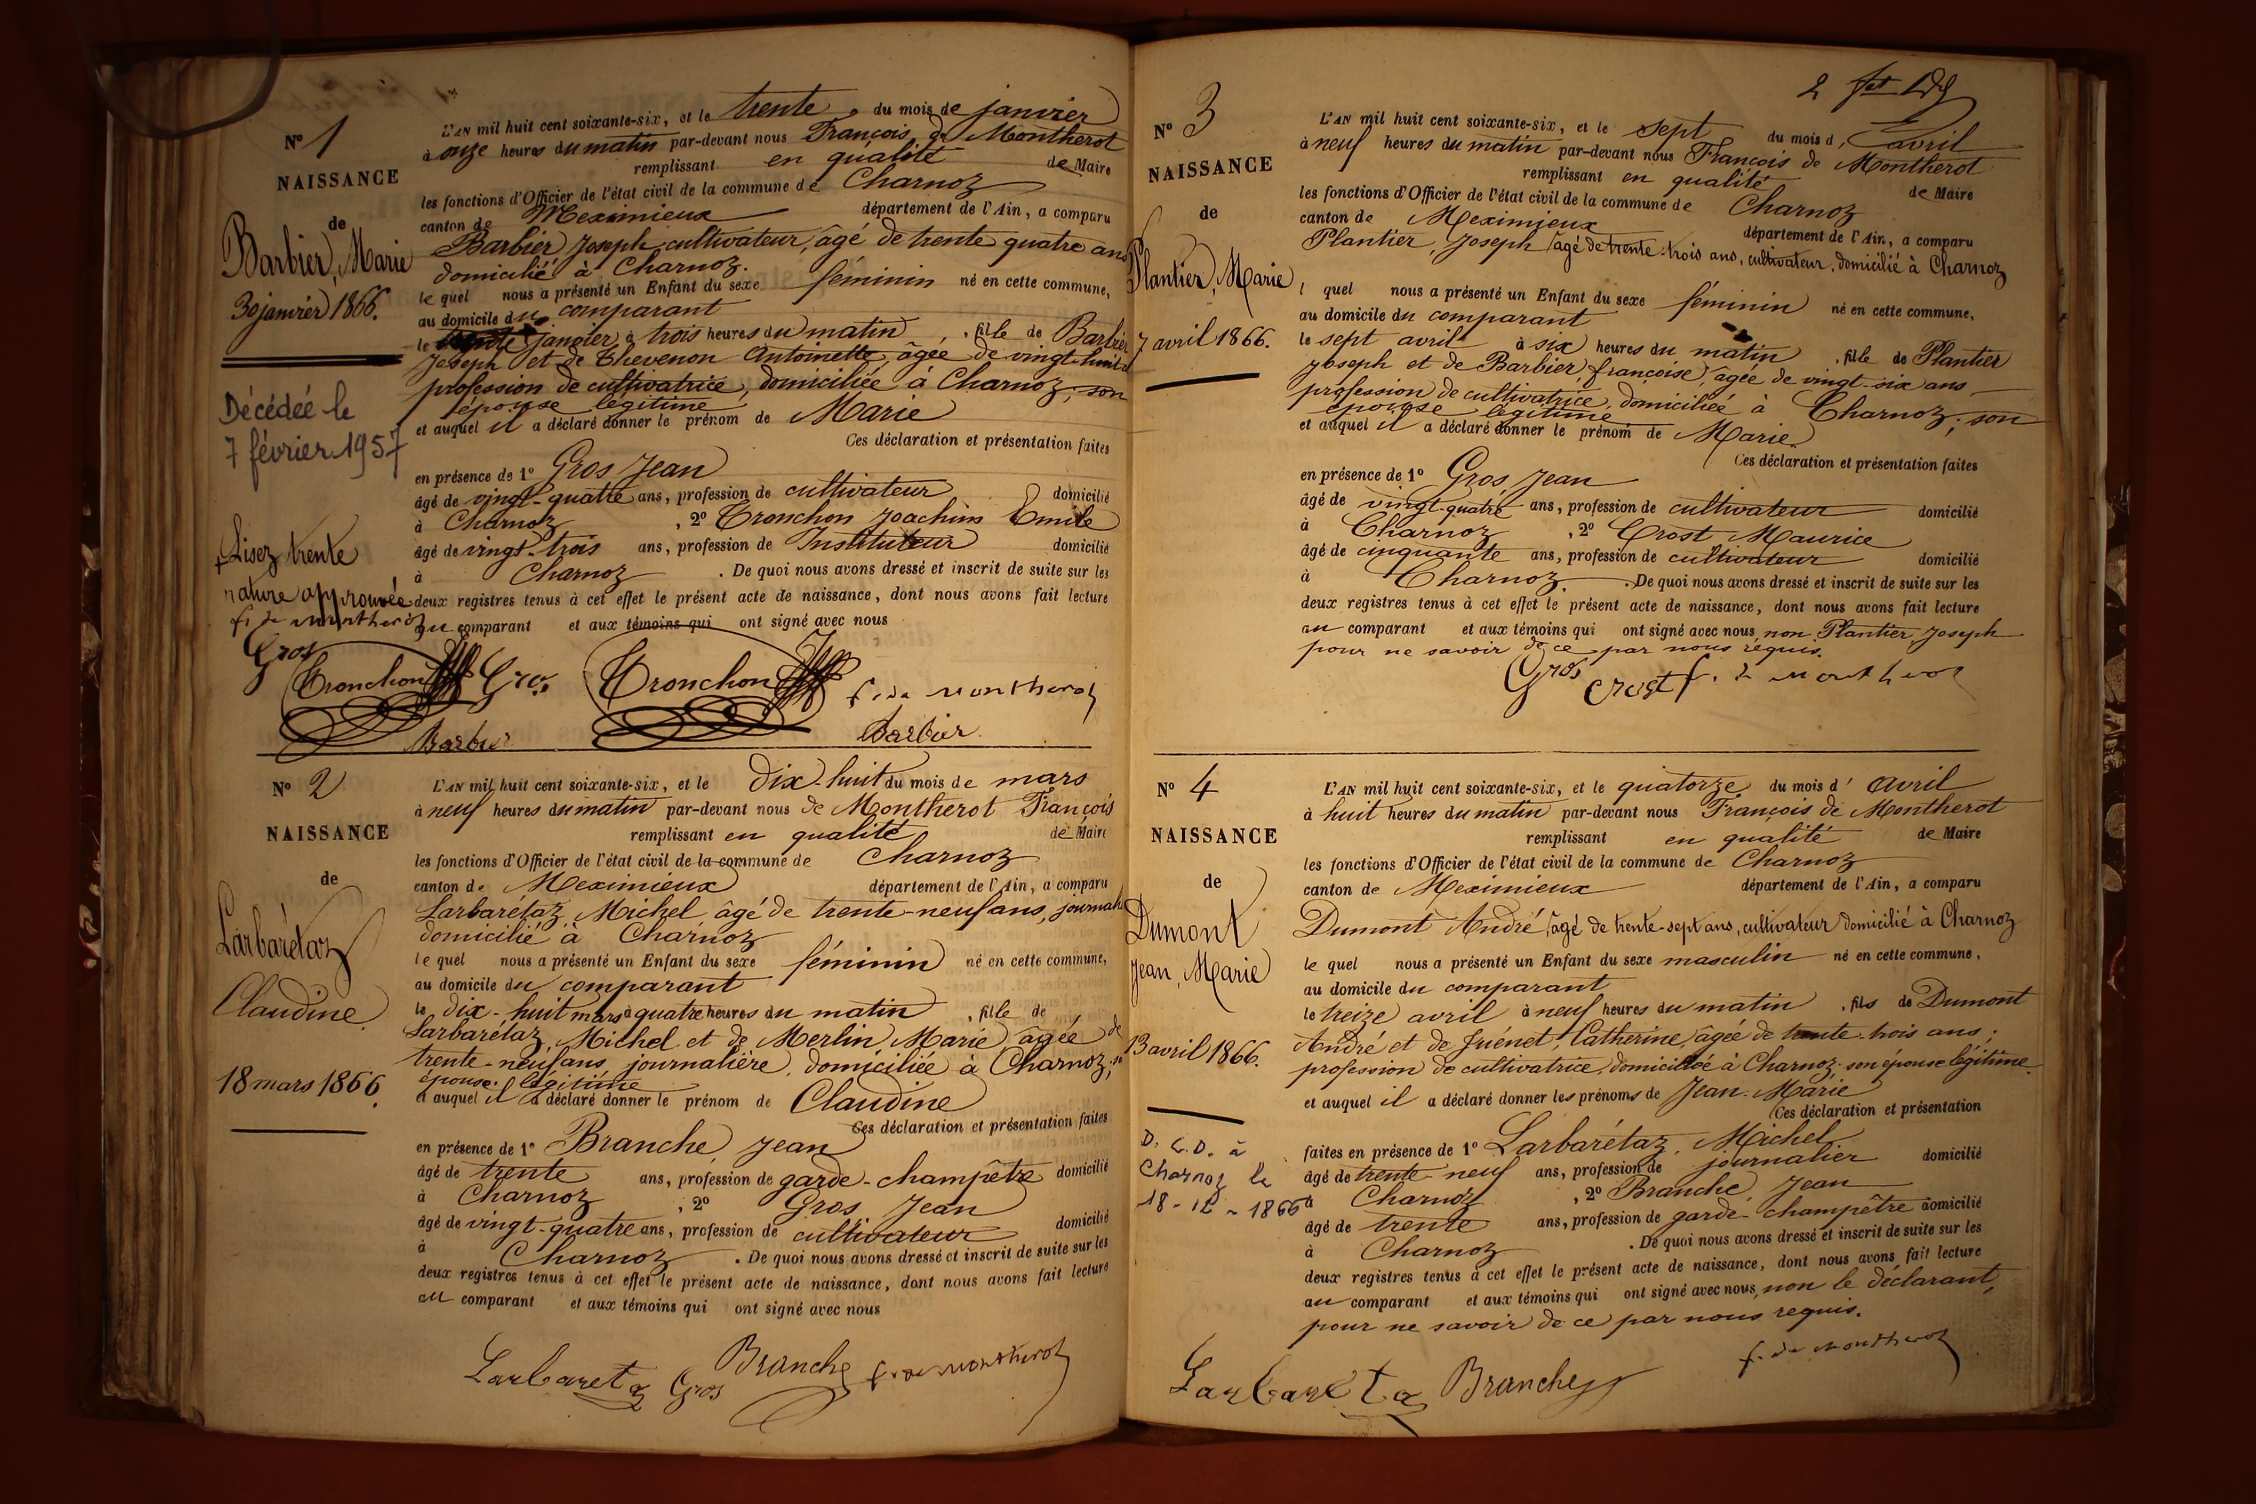 N° 1
NAISSANCE
de
Barbier, Marie
30 janvier 1866.
Décédée le
7 février 1957
Lisez trente
rature approuvée
f. de Montherot
Gros
Tronchon
Barbier
L'AN mil huit cent soixante-six, et le trente du mois de janvier
à onze heures du matin par-devant nous François de Montherot
remplissant en qualité de Maire
les fonctions d'Officier de l'état civil de la commune de Charnoz
canton de Meximieux département de l'Ain, a comparu
Barbier Joseph cultivateur, âgé de trente quatre ans
domicilié à Charnoz.
le quel nous a présenté un Enfant du sexe féminin né en cette commune,
au domicile du comparant
le janvier à trois heures du matin, fille de Barbier
Joseph et de Thevenon Antoinette, âgée de vingt-huit
profession de cultivatrice, domiciliée à Charnoz, son
épouse légitime
et auquel il a déclaré donner le prénom de Marie
Ces déclaration et présentation faites
en présence de 1° Gros Jean
âgé de vingt-quatre ans, profession de cultivateur domicilié
à Charnoz, 2° Tronchon Joachim Emile
âgé de vingt-trois ans, profession de Instituteur domicilié
à Charnoz. De quoi nous avons dressé et inscrit de suite sur les
deux registres tenus à cet effet le présent acte de naissance, dont nous avons fait lecture
au comparant et aux témoins qui ont signé avec nous
Gros Tronchon f. de Montherot
Barbier
N° 2
NAISSANCE
de
Larbarétaz
Claudine
18 mars 1866.
L'AN mil huit cent soixante-six, et le dix-huit du mois de mars
à neuf heures du matin par-devant nous de Montherot François
remplissant en qualité de Maire
les fonctions d'Officier de l'état civil de la commune de Charnoz
canton de Meximieux département de l'Ain, a comparu
Larbarétaz Michel âgé de trente-neuf ans, journal
domicilié à Charnoz
le quel nous a présenté un Enfant du sexe féminin né en cette commune,
au domicile du comparant
le dix-huit mars à quatre heures du matin, fille de
Larbarétaz, Michel et de Merlin Marie âgée de
trente-neuf ans, journalière, domiciliée à Charnoz, sa
épouse légitime
et auquel il a déclaré donner le prénom de Claudine
Ces déclaration et présentation faites
en présence de 1° Branche Jean
âgé de trente ans, profession de garde-champêtre domicilié
à Charnoz, 2° Gros Jean
âgé de vingt-quatre ans, profession de cultivateur domicilié
à Charnoz. De quoi nous avons dressé et inscrit de suite sur les
deux registres tenus à cet effet le présent acte de naissance, dont nous avons fait lecture
au comparant et aux témoins qui ont signé avec nous
Larbareta Gros Branche f. de Montherot
2
N° 3
NAISSANCE
de
Plantier, Marie
7 avril 1866.
L'AN mil huit cent soixante-six, et le sept du mois d' avril
à neuf heures du matin par-devant nous François de Montherot
remplissant en qualité de Maire
les fonctions d'Officier de l'état civil de la commune de Charnoz
canton de Meximieux département de l'Ain, a comparu
Plantier, Joseph âgé de trente-trois ans, cultivateur, domicilié à Charnoz
l quel nous a présenté un Enfant du sexe féminin né en cette commune,
au domicile du comparant
le sept avril à six heures du matin, fille de Plantier
Joseph et de Barbier françoise, âgée de vingt-six ans
profession de cultivatrice, domiciliée à Charnoz, son
épouse légitime
et auquel il a déclaré donner le prénom de Marie.
Ces déclaration et présentation faites
en présence de 1° Gros Jean
âgé de vingt-quatre ans, profession de cultivateur domicilié
à Charnoz, 2° Crost Maurice
âgé de cinquante ans, profession de cultivateur domicilié
à Charnoz. De quoi nous avons dressé et inscrit de suite sur les
deux registres tenus à cet effet le présent acte de naissance, dont nous avons fait lecture
au comparant et aux témoins qui ont signé avec nous, non Plantier Joseph
pour ne savoir de ce par nous requis.
Gros Crost f. de Montherot
N° 4
NAISSANCE
de
Dumont
Jean, Marie
13 avril 1866.
D. C. D. à
Charnoz le
18-12-1866
L'AN mil huit cent soixante-six, et le quatorze du mois d' avril
à huit heures du matin par-devant nous François de Montherot
remplissant en qualité de Maire
les fonctions d'Officier de l'état civil de la commune de Charnoz
canton de Meximieux département de l'Ain, a comparu
Dumont André, âgé de trente-sept ans, cultivateur domicilié à Charnoz
le quel nous a présenté un Enfant du sexe masculin né en cette commune,
au domicile du comparant
le treize avril à neuf heures du matin, fils de Dumont
André et de Juénet Catherine, âgée de trente-trois ans,
profession de cultivatrice, domiciliée à Charnoz, son épouse légitime.
et auquel il a déclaré donner les prénoms de Jean-Marie
Ces déclaration et présentation
faites en présence de 1° Larbarétaz, Michel
âgé de trente-neuf ans, profession de journalier domicilié
à Charnoz, 2° Branche Jean
âgé de trente ans, profession de garde-champêtre domicilié
à Charnoz. De quoi nous avons dressé et inscrit de suite sur les
deux registres tenus à cet effet le présent acte de naissance, dont nous avons fait lecture
au comparant et aux témoins qui ont signé avec nous, non le déclarant,
pour ne savoir de ce par nous requis.
Larbareta Branche f. de Montherot